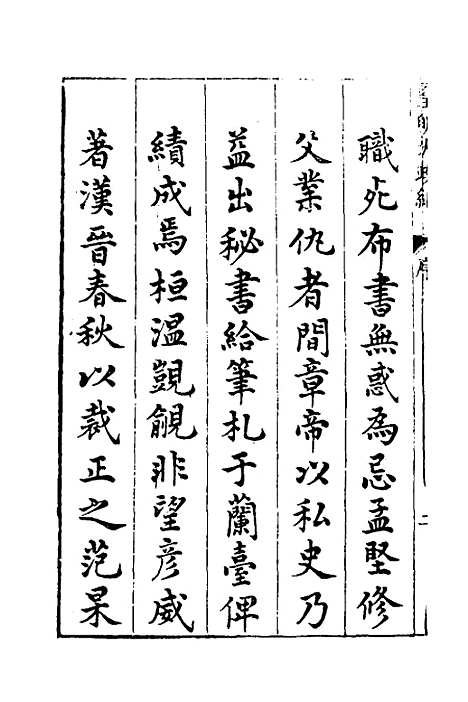 職死布書無惑為忌孟堅修
父業仇者間章帝以私史乃
益出秘書給筆札于蘭臺俾
績成焉桓溫覬覦非望彦威
著漢晉春秋以裁正之范杲
序
二